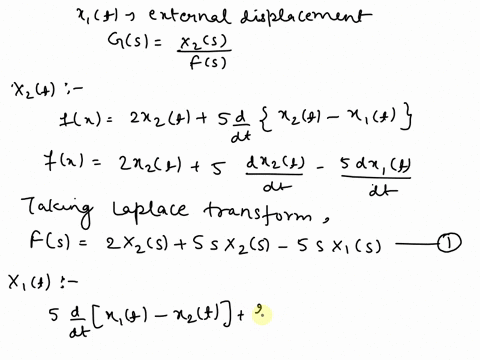 x₁(t) → external displacement
G(s) = X₂(s) / F(s)
X₂(t) :-
f(x) = 2x₂(t) + 5 d/dt { x₂(t) - x₁(t) }
f(x) = 2x₂(t) + 5 dx₂(t)/dt - 5dx₁(t)/dt
Taking Laplace transform,
F(s) = 2X₂(s) + 5 s X₂(s) - 5 s X₁(s) —— ①
X₁(t) :-
5 d/dt [x₁(t) - x₂(t)] +